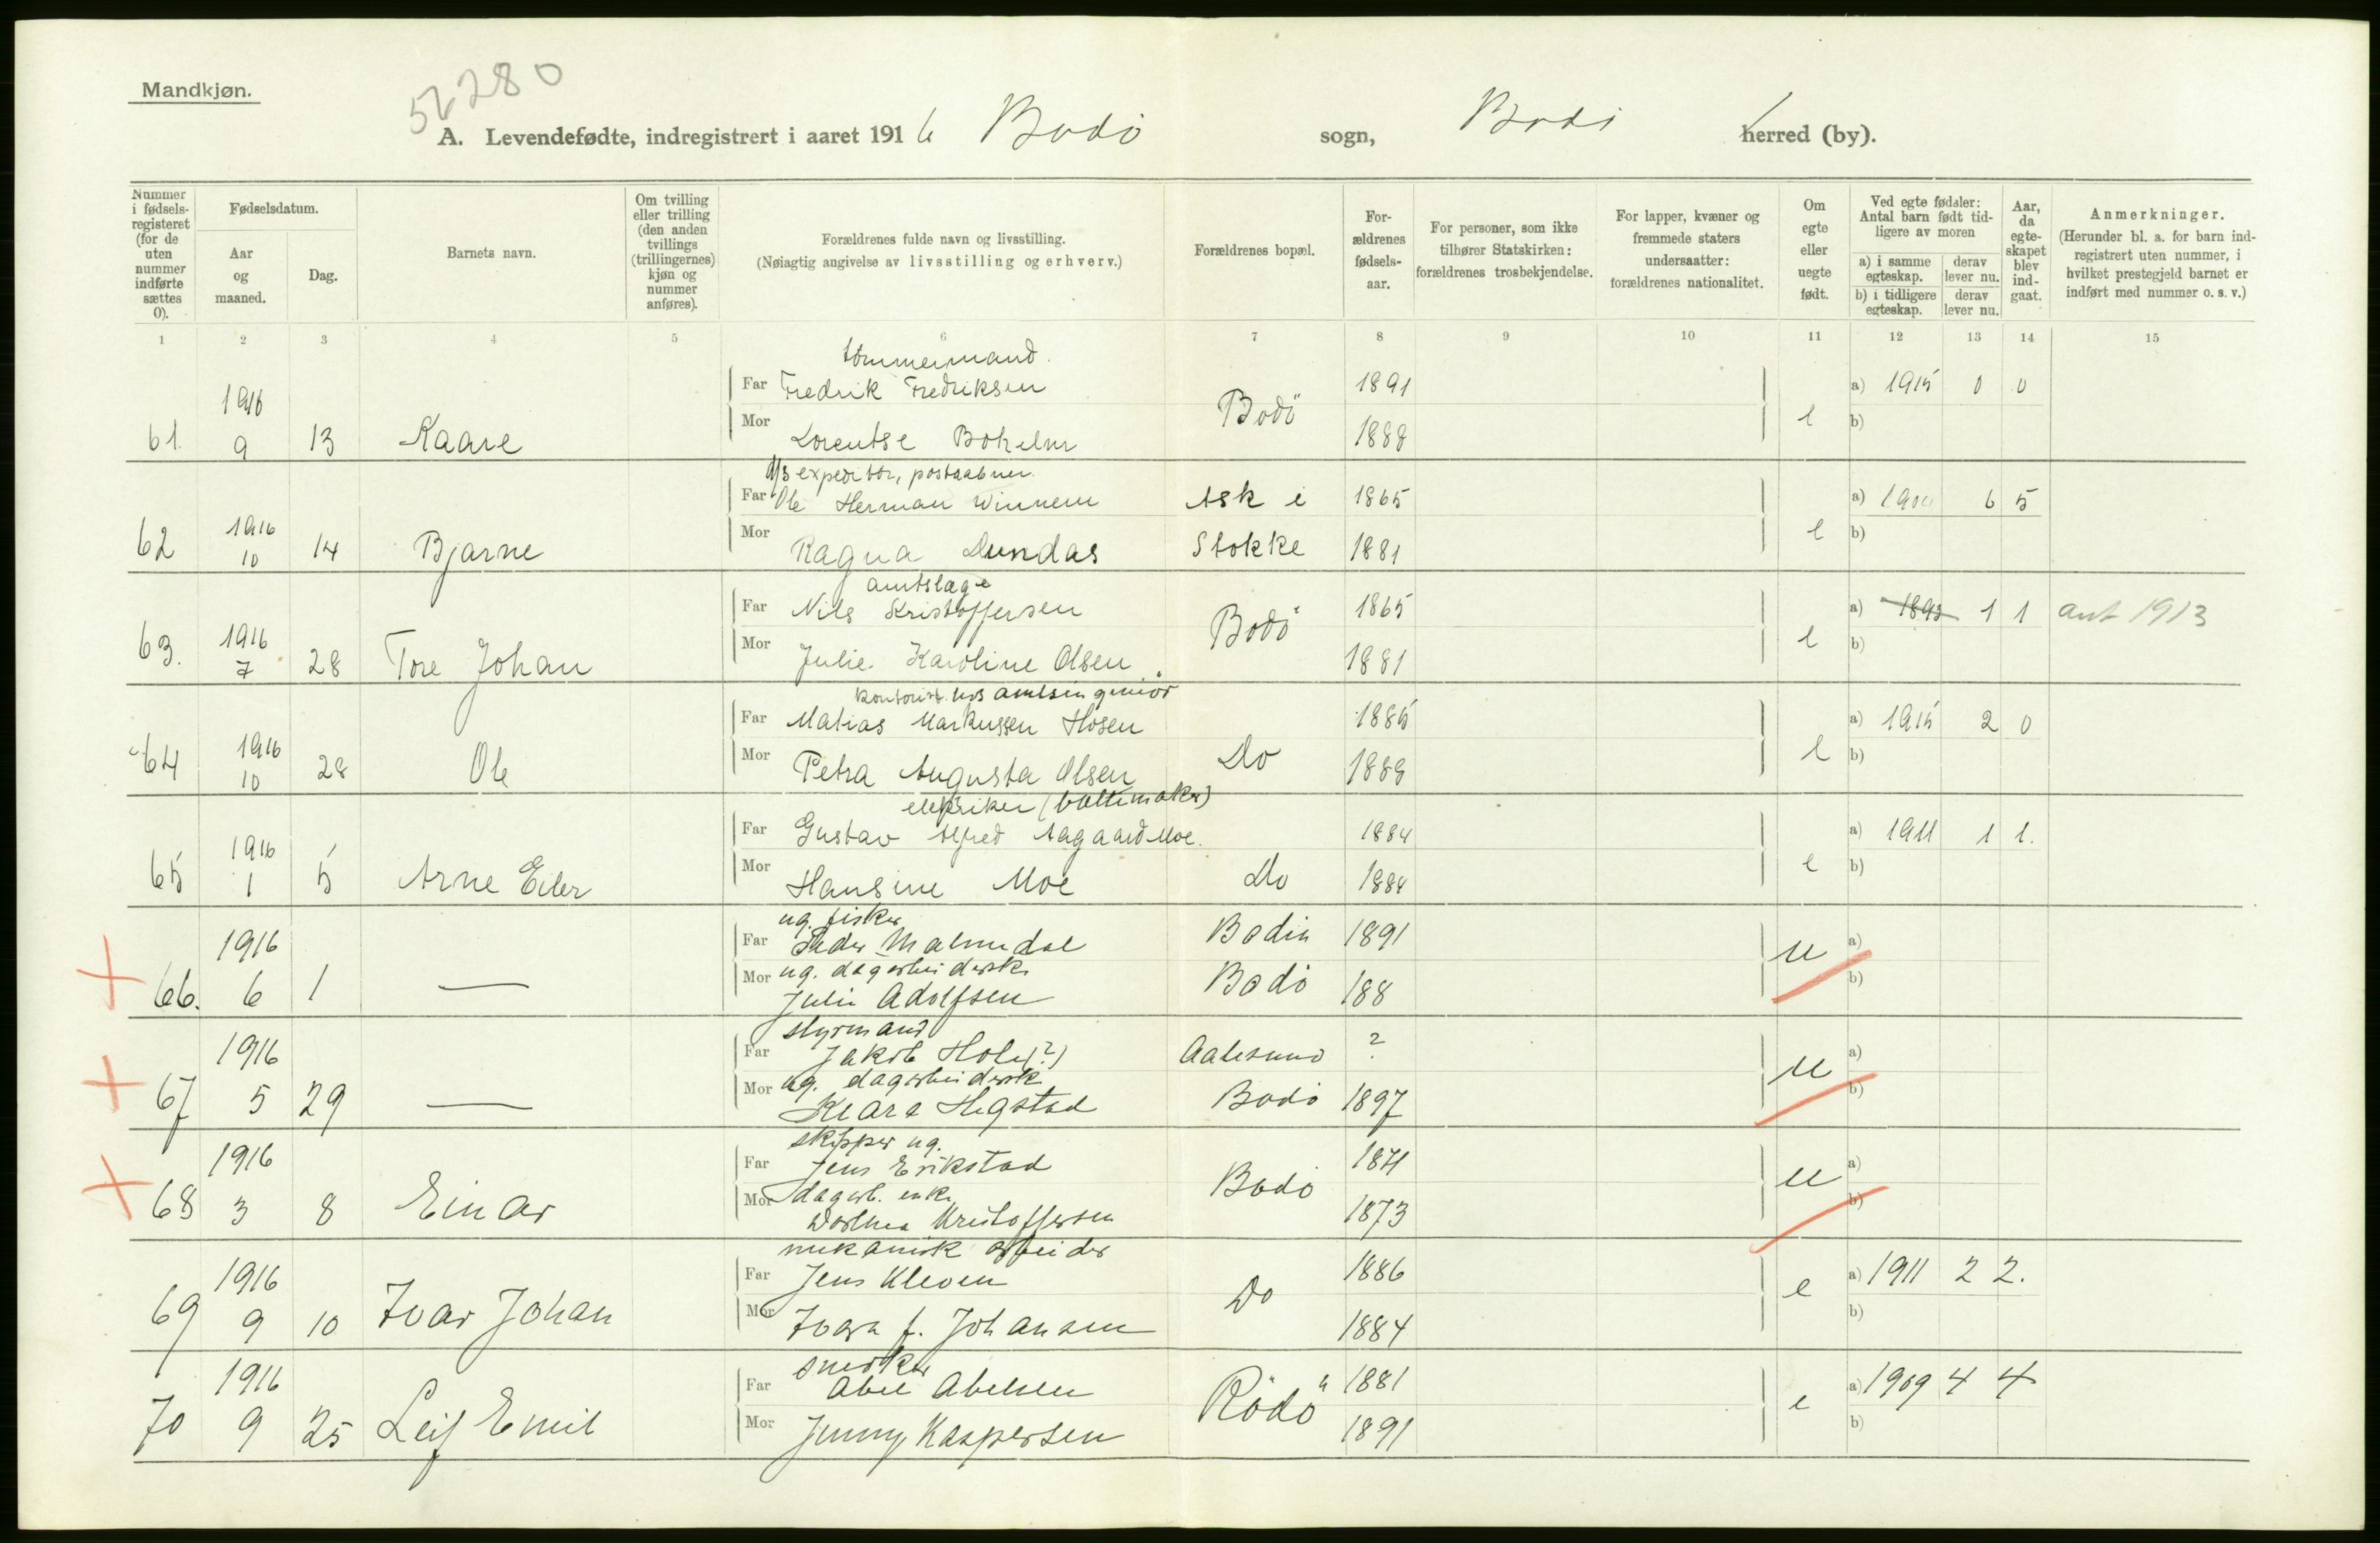 Mandkjøn.
52280
A. Levendefødte, indregistrert i aaret 1916 Bodö sogn, Bodö herred (by).
Nummer i fødselsregisteret (for de uten nummer indførte sættes 0).
Fødselsdatum.
Aar og maaned.
Dag.
Barnets navn.
Om tvilling eller trilling (den anden tvillings (trillingernes) kjøn og nummer anføres).
Forældrenes fulde navn og livsstilling.
(Nøiagtig angivelse av livsstilling og erhverv.)
Forældrenes bopæl.
Forældrenes fødselsaar.
For personer, som ikke tilhører Statskirken: forældrenes trosbekjendelse.
For lapper, kvæner og fremmede staters undersaatter: forældrenes nationalitet.
Om egte eller uegte født.
Ved egte fødsler: Antal barn født tidligere av moren
a) i samme egteskap. derav lever nu.
b) i tidligere egteskap. derav lever nu.
Aar, da egteskapet blev indgaat.
Anmerkninger.
(Herunder bl. a. for barn indregistrert uten nummer, i hvilket prestegjeld barnet er indført med nummer o. s. v.)
1 2 3 4 5 6 7 8 9 10 11 12 13 14 15
tömmermand.
Far Fredrik Fredriksen 1891 a) 1915 0 0
61. 1916 9 13 Kaare Mor Lorentse Bokelm Bodö 1888 e b)
D/S expeditör, postaabner.
Far Ole Herman Winnem Ask i 1865 a) 6 5
62 1916 10 14 Bjarne Mor Ragna Dundas Stokke 1881 e b)
amtslæge
Far Nils Kristoffersen 1865 a) 1893 1 1 ant 1913
63. 1916 7 28 Tore Johan Mor Julie Karoline Olsen Bodö 1881 e b)
kontorist hos amtsingeniör
Far Matias Markussen Hosen 1885 a) 1915 2 0
64 1916 10 28 Ole Mor Petra Augusta Olsen Do 1889 e b)
elektriker
Far Gustav Alfred Aagaard Moe. 1884 a) 1911 1 1.
65 1916 1 5 Arne Eiler Mor Hansine Moe Do 1884 e b)
ug. fisker
Far Peder Malmedal Bodin 1891 a)
ug. dagarbeiderske
66. 1916 6 1 — Mor Julie Adolfsen Bodö 188 u b)
styrmand
Far Jakob Holm(?) Aalesund ? a)
ug. dagarbeidersk
67 1916 5 29 — Mor Klara Hegstad Bodö 1897 u b)
skipper ug.
Far Jens Erikstad 1871 a)
dagarb. enke
68 1916 3 8 Einar Mor Dorthea Kristoffersen Bodö 1873 u b)
mekanisk arbeider
Far Jens Kleven 1886 a) 1911 2 2.
69 1916 9 10 Ivar Johan Mor Ivara f. Johansen Do 1884 e b)
snedker
Far Abel Abelsen 1881 a) 1909 4 4
70 1916 9 25 Leif Emil Mor Jenny Kaspersen Rödö 1891 e b)